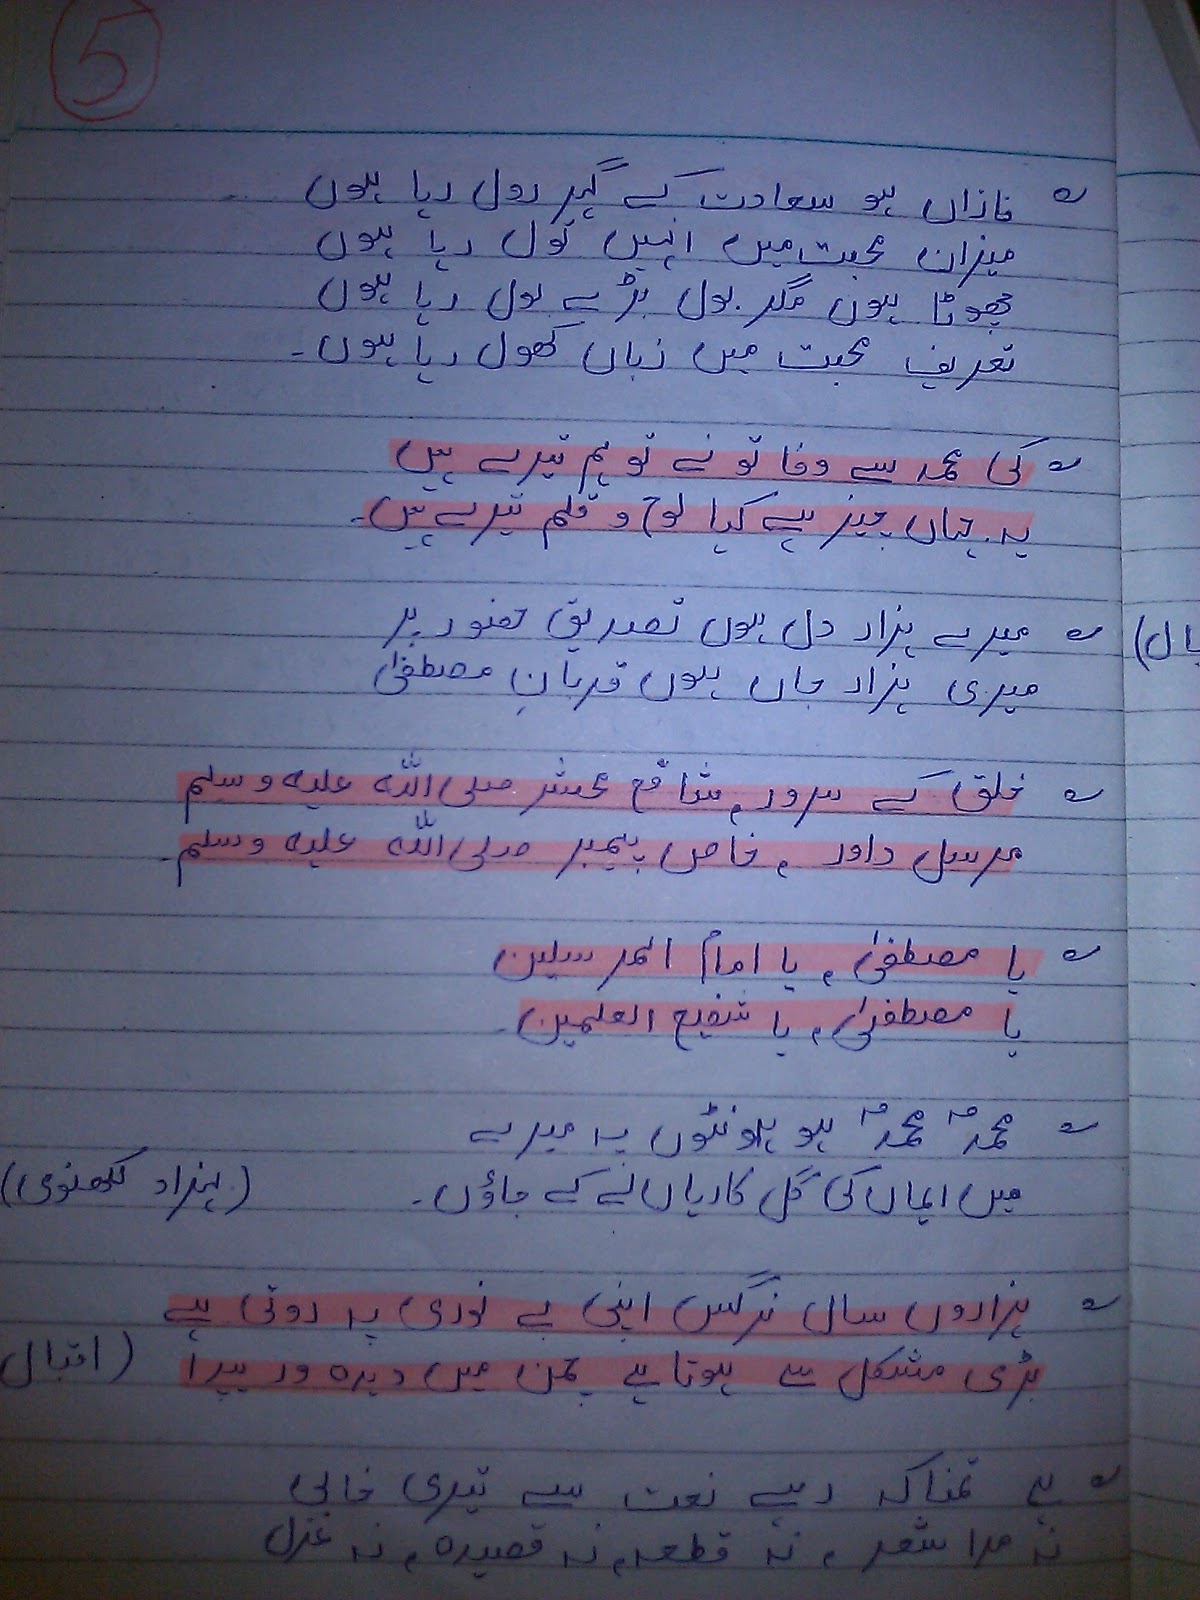 5
نازاں ہو سعادت کے گہر رول رہا ہوں
میزان محبت میں انہیں تول رہا ہوں
چھوٹا ہوں مگر بول بڑے بول رہا ہوں
تعریف محبت میں زباں کھول رہا ہوں۔
کی محمد سے وفا تو نے تو ہم تیرے ہیں
یہ جہاں چیز ہے کیا لوح و قلم تیرے ہیں۔
میرے ہزار دل ہوں تصدیق حضور پر
میری ہزار جاں ہوں قربانِ مصطفیٰ
بال)
خلق کے سرور، شافع محشر صلی اللہ علیہ وسلم
مرسل داور، خاص پیمبر صلی اللہ علیہ وسلم۔
یا مصطفیٰ، یا امام المرسلین
یا مصطفیٰ، یا شفیع العلمین۔
محمدؐ محمدؐ ہو ہونٹوں پہ میرے
میں ایماں کی گل کاریاں لے کے جاؤں۔ (بہزاد لکھنوی)
ہزاروں سال نرگس اپنی بے نوری پہ روتی ہے
بڑی مشکل سے ہوتا ہے چمن میں دیدہ ور پیدا (اقبال
ہے تمنا کہ رہے نعت سے تیری خالی
نہ مرا شعر، نہ قطعہ، نہ قصیدہ، نہ غزل